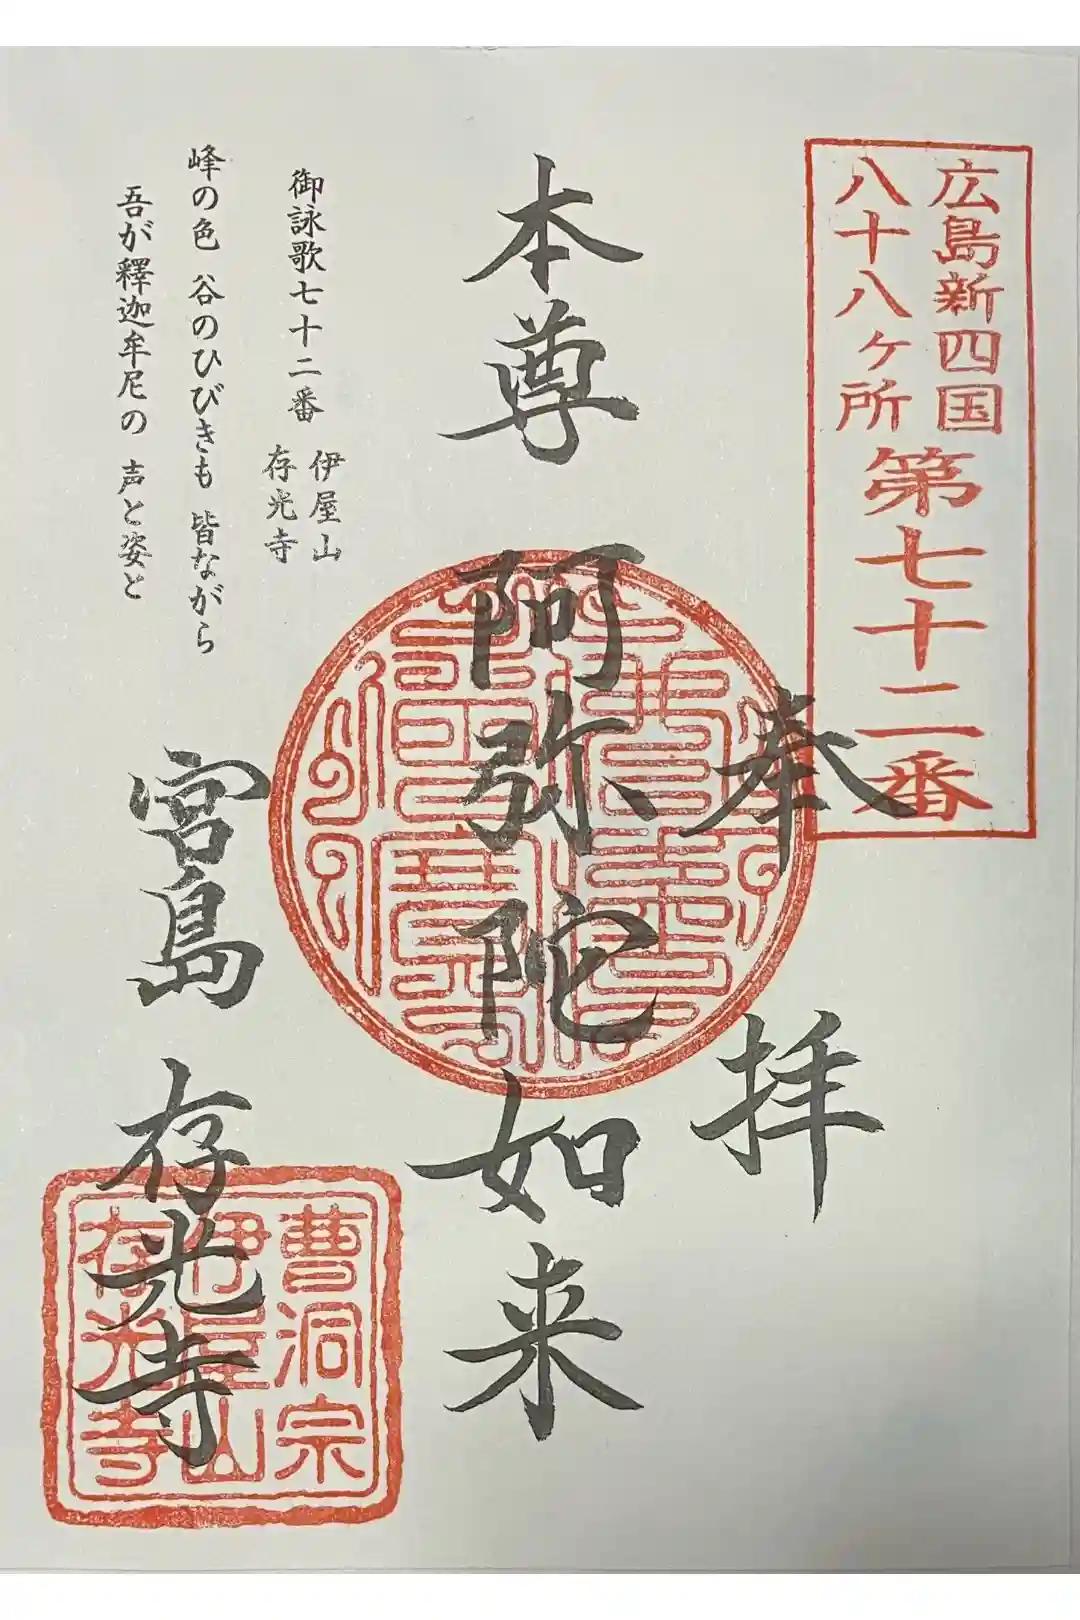 広島新四国
八十八ヶ所
第七十二番
奉拝
本尊 阿弥陀如来
御詠歌七十二番
伊屋山
存光寺
峰の色 谷のひびきも 皆ながら
吾が釋迦牟尼の 声と姿と
宮島 存光寺
曹洞宗
伊屋山
存光寺